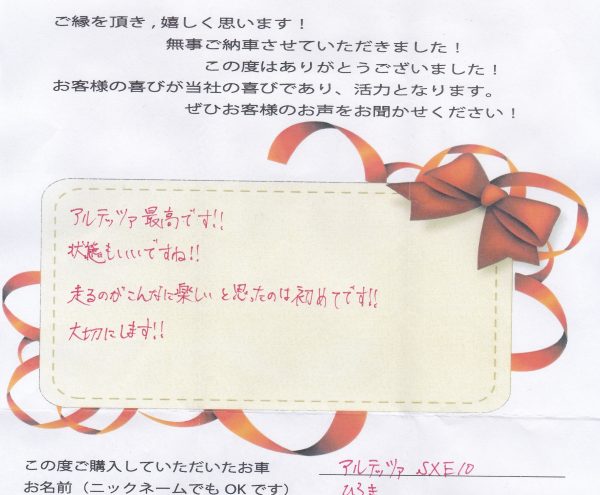 ご縁を頂き,嬉しく思います!
無事ご納車させていただきました!
この度はありがとうございました!
お客様の喜びが当社の喜びであり、活力となります。
ぜひお客様のお声をお聞かせください!
アルテッツァ最高です!!
状態もいいですね!!
走るのがこんなに楽しいと思ったのは初めてです!!
大切にします!!
この度ご購入していただいたお車 アルテッツァ SXE10
お名前(ニックネームでもOKです) ひろき